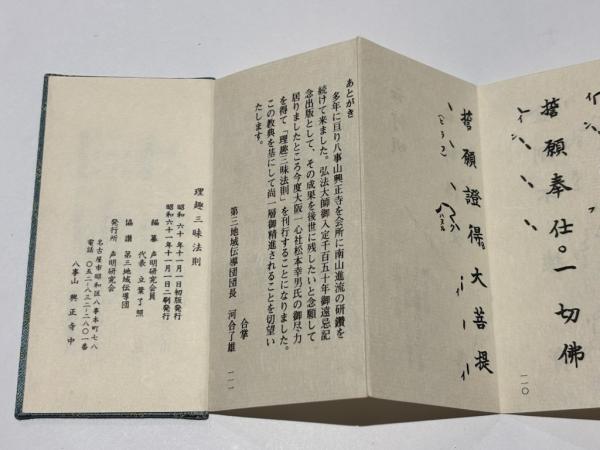 誓願奉仕。一切佛
一一〇
誓願證得大菩提
あとがき
多年に亘り八事山興正寺を会所に南山進流の研鑽を
続けて来ました。弘法大師御入定千百五十年御遠忌記
念出版として、その成果を後世に残したいと念願して
居りましたところ今度大阪一心社松本幸男氏の御尽力
を得て「理趣三昧法則」を刊行することになりました。
この教典を基にして尚一層御精進されることを切望い
たします。
合掌
第三地域伝導団団長 河合了雄
一一一
理趣三昧法則
昭和六十年十一月一日初版発行
昭和六十一年十一月一日二刷発行
編纂 声明研究会員
代表 立葉了照
協讃 第三地域伝導団
発行所 声明研究会
名古屋市昭和区八事本町七八
電話 〇五二-八三二-二八〇一番
八事山 興正寺中